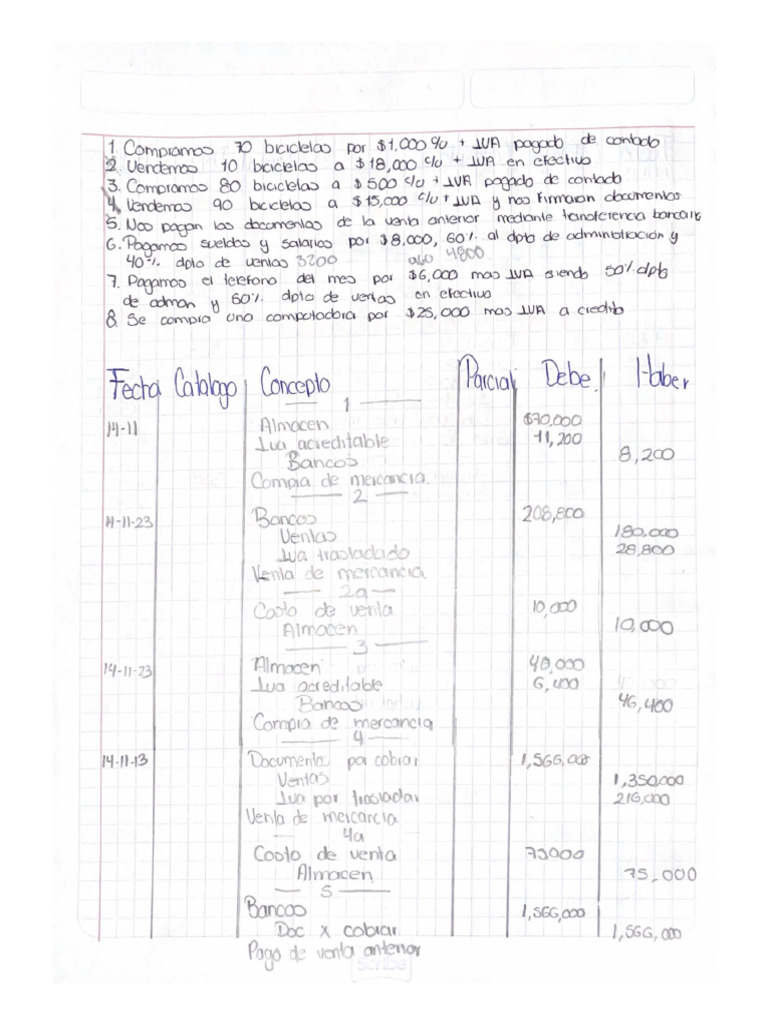 1. Compramos 70 bicicletas por $1,000 c/u + IVA pagado de contado
2. Vendemos 10 bicicletas a $18,000 c/u + IVA en efectivo
3. Compramos 80 bicicletas a $500 c/u + IVA pagado de contado
4. Vendemos 90 bicicletas a $15,000 c/u + IVA y nos firmaron documentos
5. Nos pagan los documentos de la venta anterior mediante transferencia bancaria
6. Pagamos sueldos y salarios por $8,000, 60% al dpto de administración y
40% dpto de ventas 3200 4800
7. Pagamos el telefono del mes por $6,000 mas IVA siendo 50% dpto
de admon y 50% dpto de ventas en efectivo
8. Se compra una computadora por $25,000 mas IVA a credito
Fecha Catalogo Concepto Parcial Debe Haber
1
14-11 Almacen $70,000
Iva acreditable 11,200
Bancos 8,200
Compra de mercancia
2
14-11-23 Bancos 208,800
Ventas 180,000
Iva trasladado 28,800
Venta de mercancia
2a
Costo de venta 10,000
Almacen 10,000
3
14-11-23 Almacen 40,000
Iva acreditable 6,400
Bancos 46,400
Compra de mercancia
4
14-11-13 Documento por cobrar 1,566,000
Ventas 1,350,000
Iva por trasladar 216,000
Venta de mercancia
4a
Costo de venta 75000
Almacen 75,000
5
Bancos 1,566,000
Doc x cobrar 1,566,000
Pago de venta anterior
Scribe